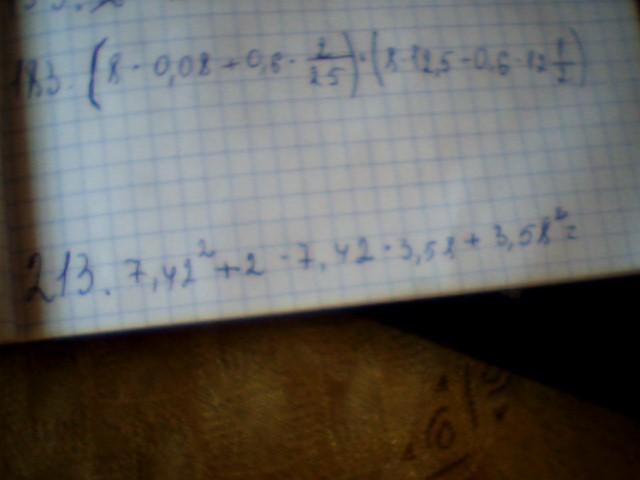 183. (8 · 0,08 + 0,6 · 2/25) · (8 · 12,5 - 0,6 · 12 1/2)
213. 7,42² + 2 · 7,42 · 3,58 + 3,58² =